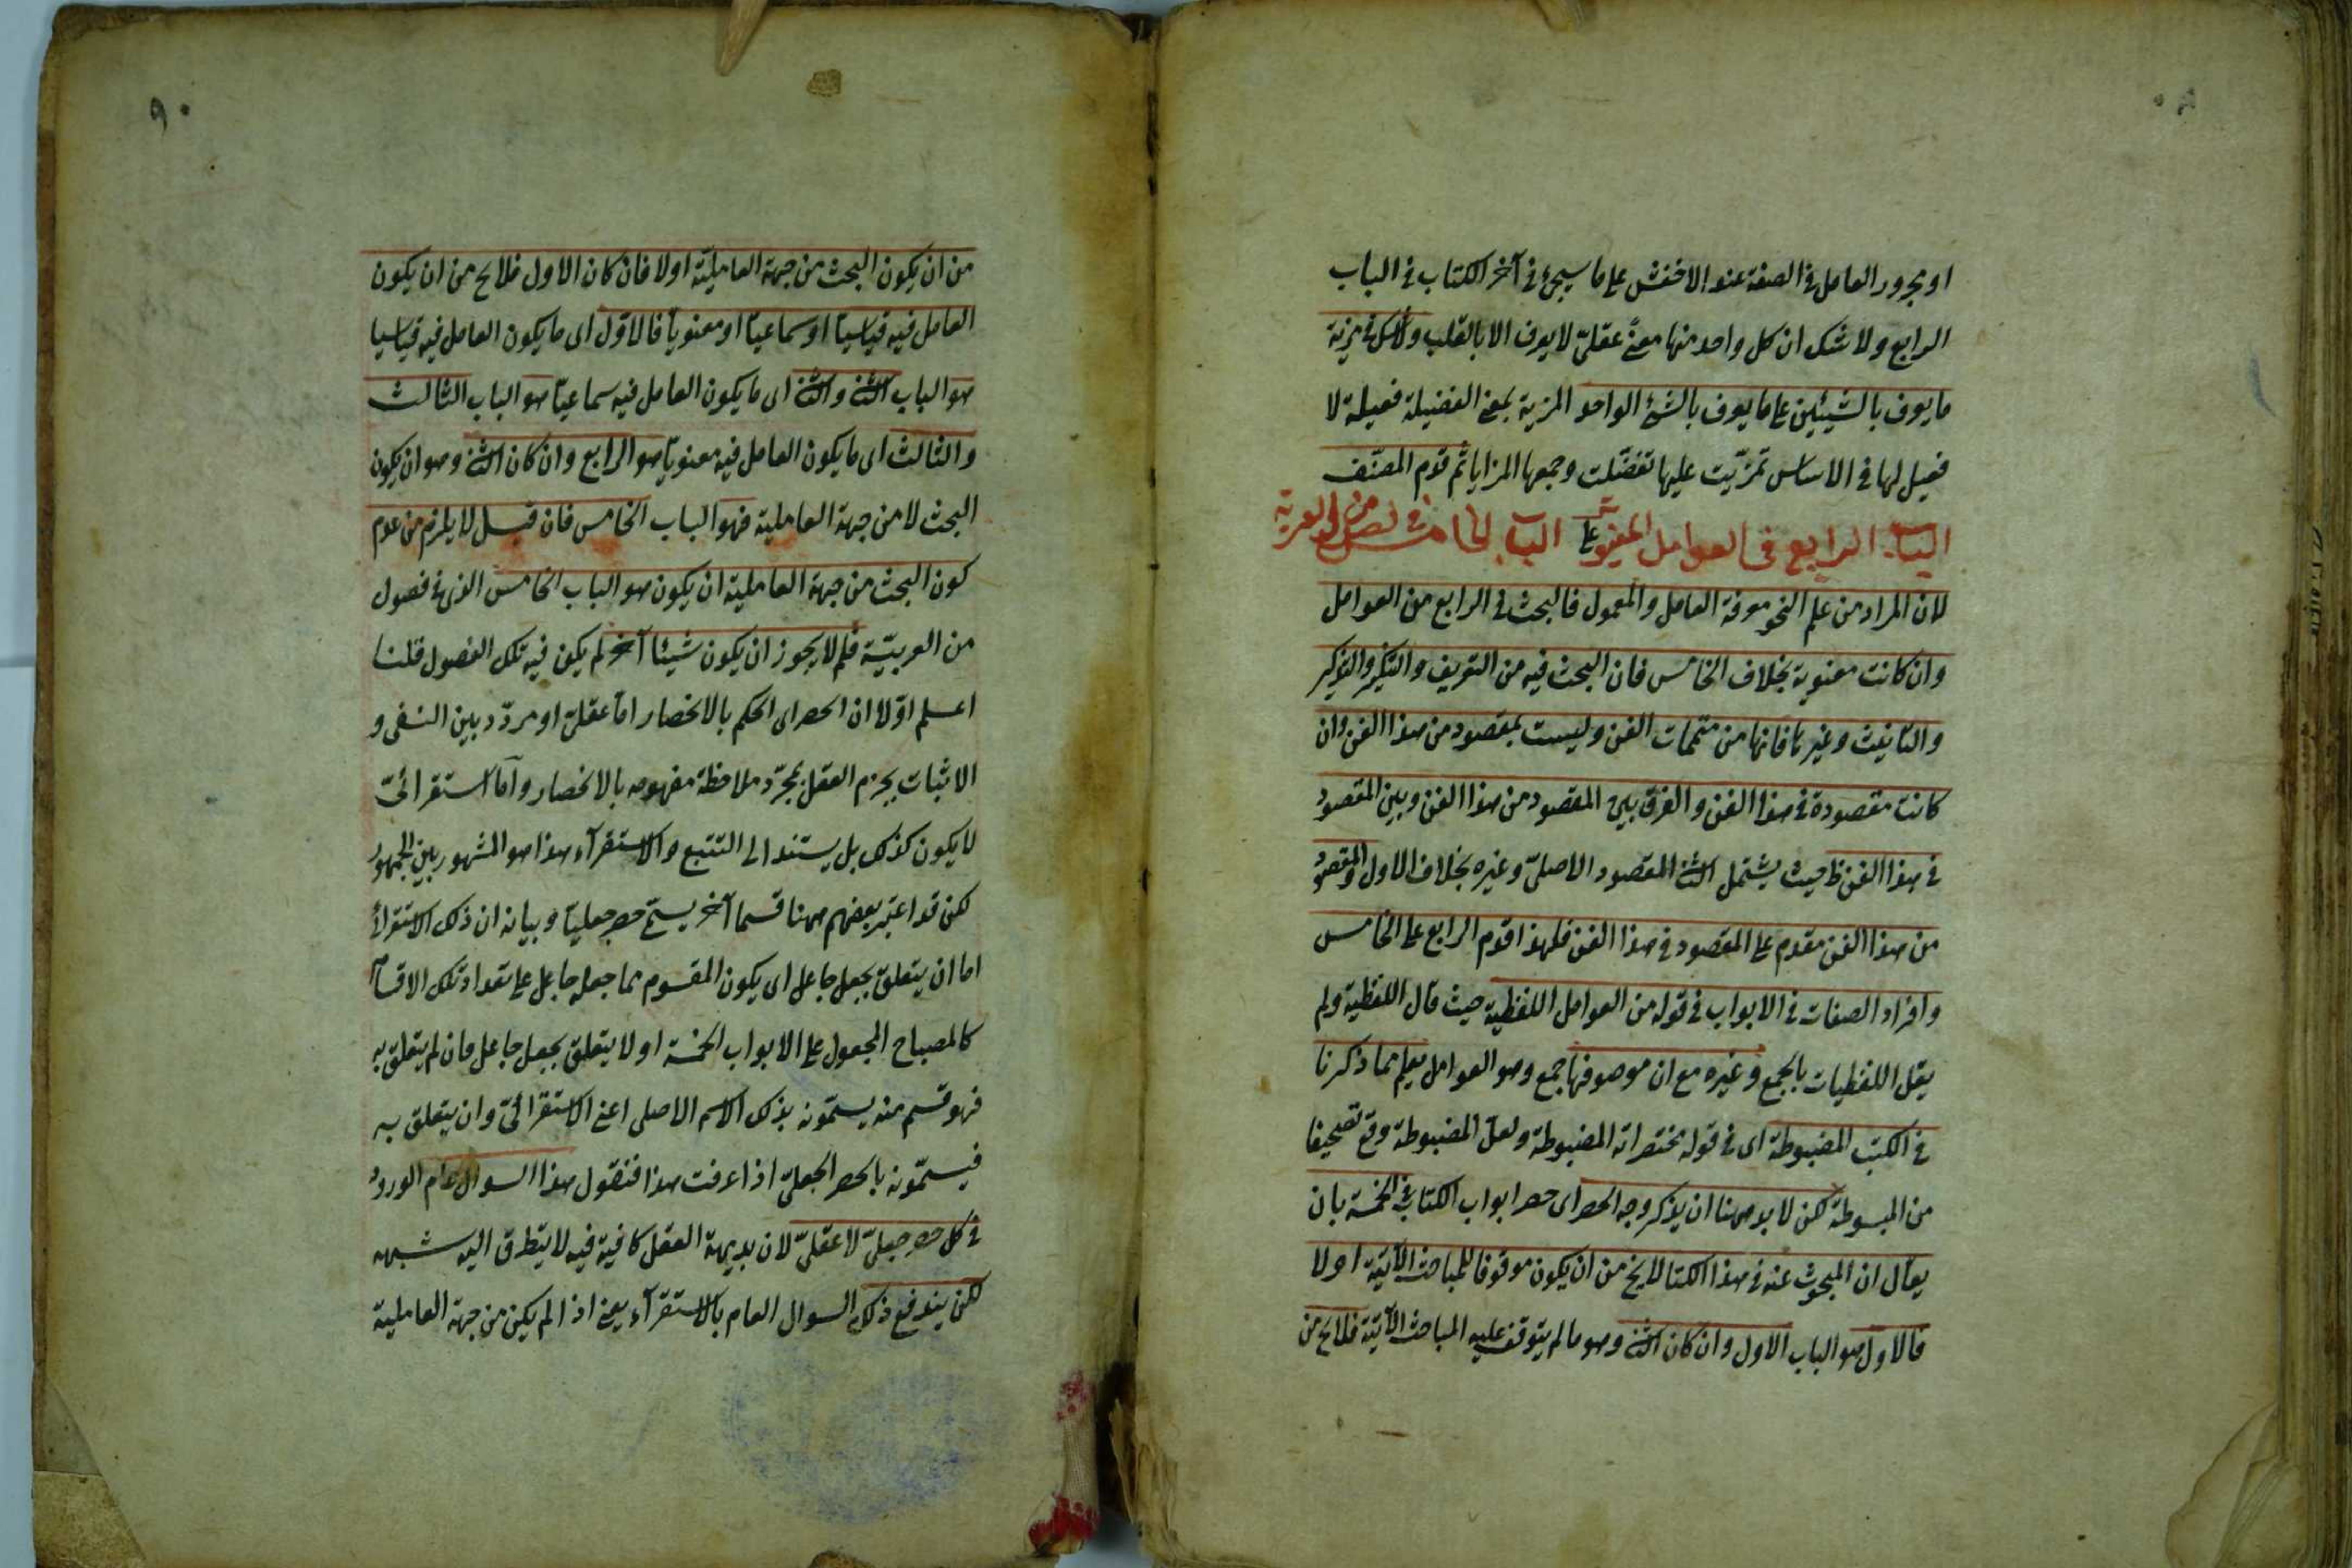 او مجرور العامل في الصفة عند الاخفش على ما سيجئ في آخر الكتاب في الباب
الرابع ولا شك ان كل واحد منها معنًى عقليّ لا يعرف الا بالقلب ولا شك في مزية
ما يعرف بالشيئين على ما يعرف بالشئ الواحد المزية بمعنى الفضيلة فعيلة لا
فعيل لها في الاساس تمزّيت عليها تفضّلت وجمعها المزايا ثم قدم المصنّف
الباب الرابع في العوامل المعنوية على الباب الخامس في فصول من العربية
لان المراد من علم النحو معرفة العامل والمعمول فالبحث في الرابع من العوامل
وان كانت معنوية بخلاف الخامس فان البحث فيه من التعريف والتنكير والتذكير
والتأنيث وغيرها فانها من متممات الفن وليست بمقصود من هذا الفن وان
كانت مقصودة في هذا الفن والفرق بين المقصود من هذا الفن وبين المقصود
في هذا الفن ظ حيث يشتمل الثاني المقصود الاصليّ وغيره بخلاف الاول والمقصود
من هذا الفن مقدم على المقصود في هذا الفن فلهذا قدم الرابع على الخامس
وافراد الصفات في الابواب في قوله من العوامل اللفظية حيث قال اللفظية ولم
يقل اللفظيات بالجمع وغيره مع ان موصوفها جمع وهو العوامل يعلم مما ذكرنا
في الكتب المضبوطة اى في قوله مختصراته المضبوطة ولعلّ المضبوطة وقع تصحيفا
من المبسوطة لكن لا بد ههنا ان يذكر وجه الحصر اى حصر ابواب الكتاب في الخمسة بان
يقال ان المبحوث عنه في هذا الكتاب لا يخ من ان يكون موقوفا للمباحث الآتية او لا
فالاول هو الباب الاول وان كان الثاني وهو ما لم يتوقف عليه المباحث الآتية فلا يخ من
٩٠
من ان يكون البحث من جهة العامليّة او لا فان كان الاول فلا يخ من ان يكون
العامل فيه قياسيا او سماعيّا او معنويّا فالاوّل اى ما يكون العامل فيه قياسيا
هو الباب الثاني والثاني اى ما يكون العامل فيه سماعيّا هو الباب الثالث
والثالث اى ما يكون العامل فيه معنويّا هو الرابع وان كان الثاني وهو ان يكون
البحث لا من جهة العاملية فهو الباب الخامس فان قيل لا يلزم من عدم
كون البحث من جهة العاملية ان يكون هو الباب الخامس الذى في فصول
من العربيّة فلم لا يجوز ان يكون شيئا آخر لم يكن فيه تلك الفصول قلنا
اعلم اوّلا ان الحصر اى الحكم بالانحصار امّا عقليّ او مردّد بين النفى و
الاثبات يجزم العقل بمجرّد ملاحظة مفهومه بالانحصار وامّا استقرائىّ
لا يكون كذلك بل يستند الى التتبع والاستقرآء هذا هو المشهور بين الجمهور
لكن قد اعتبر بعضهم ههنا قسما آخر يسمّى حصر جعليّا وبيانه ان ذلك الاستقرائي
اما ان يتعلق بجعل جاعل اى يكون المقسوم مما جعله جاعل على تعداد تلك الاقسام
كالمصباح المجعول على الابواب الخمسة او لا يتعلق بجعل جاعل فان لم يتعلق به
فهو قسم منه يسمّونه بذلك الاسم الاصلى اعنى الاستقرائىّ وان يتعلق به
فيسمّونه بالحصر الجعليّ اذا عرفت هذا فنقول هذا السوال عام الورود
في كل حصر جعليّ لا عقليّ لان بديهة العقل كافية فيه لا يتطرق اليه شبهه
لكن يندفع ذلك السوال العام بالاستقرآء يعنى اذا لم يكن من جهة العاملية